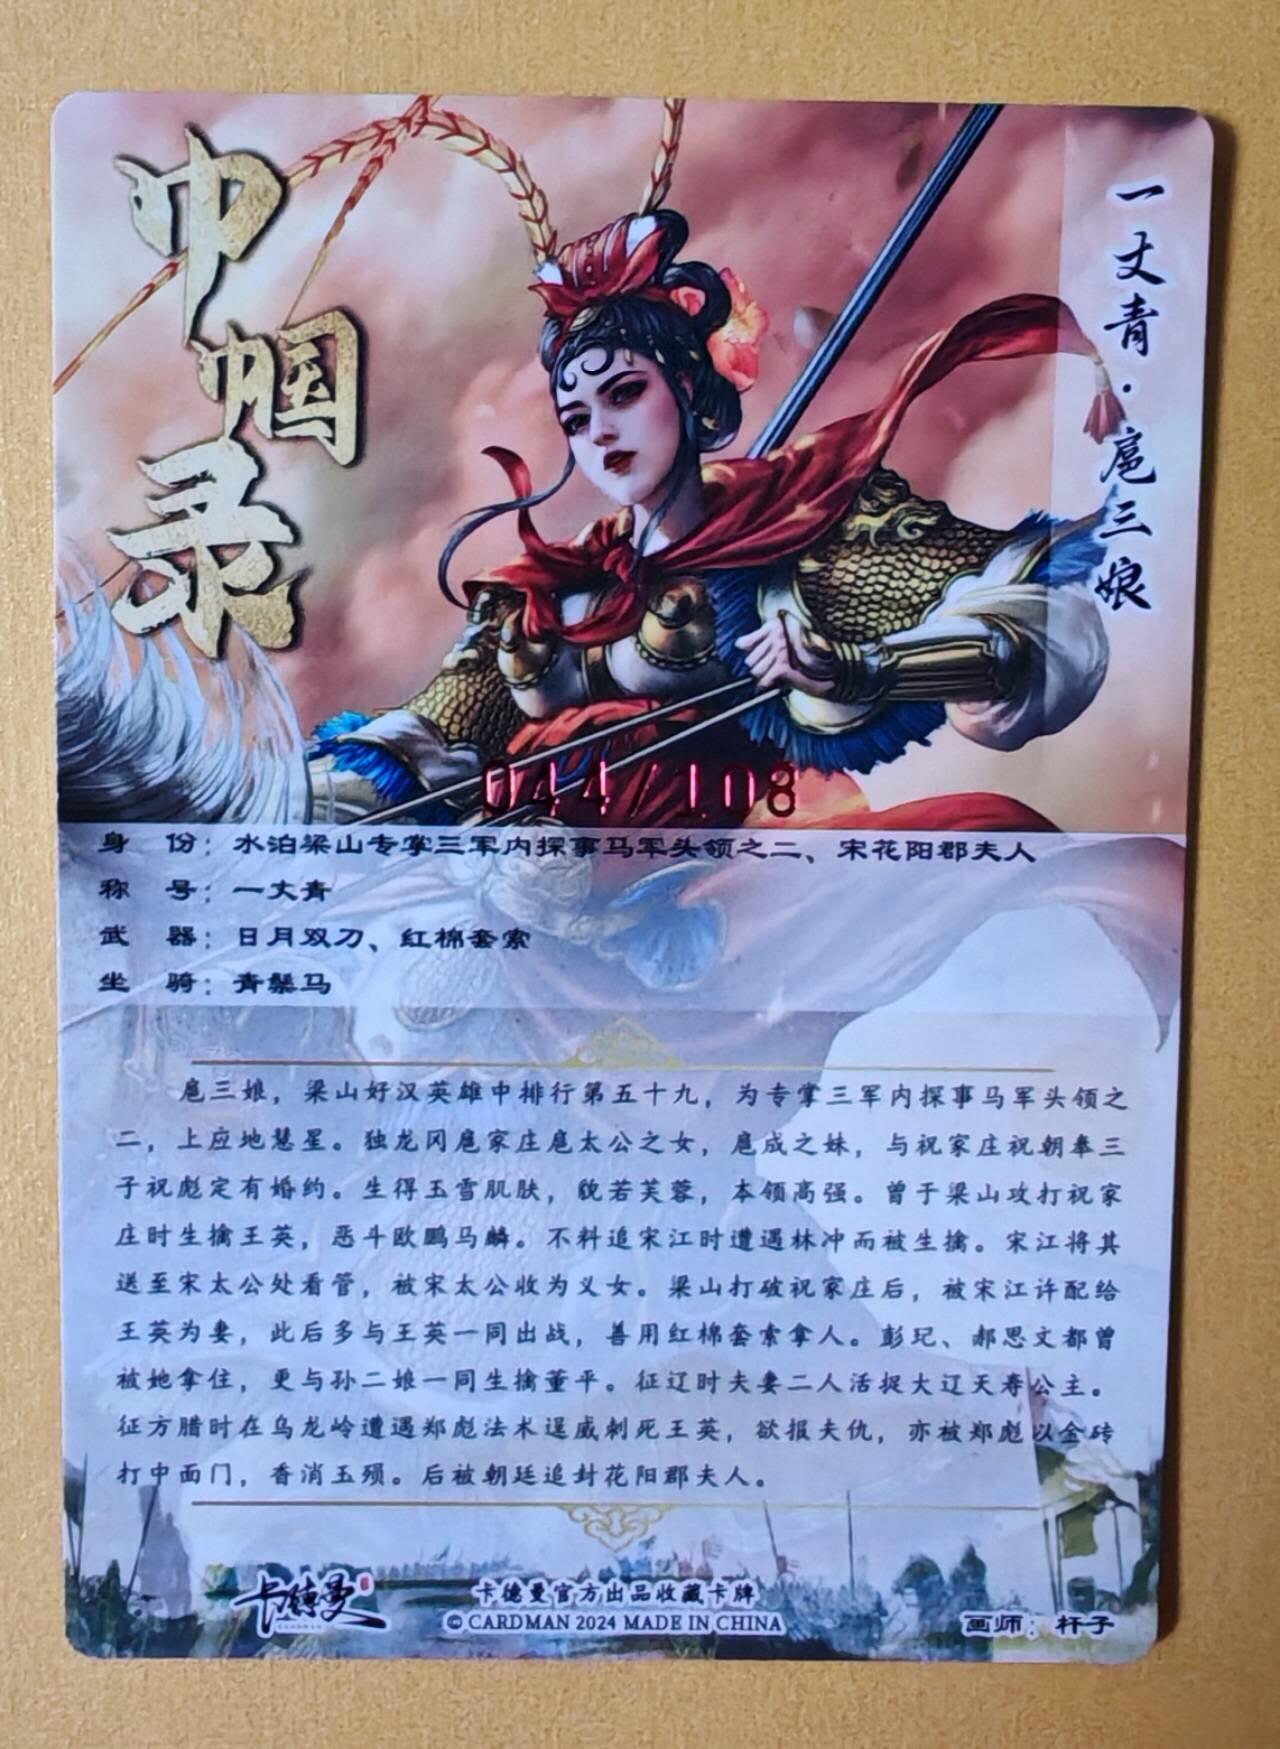 巾帼录
一丈青·扈三娘
044/108
身 份：水泊梁山专掌三军内探事马军头领之二、宋花阳郡夫人
称 号：一丈青
武 器：日月双刀、红棉套索
坐 骑：青鬃马
扈三娘，梁山好汉英雄中排行第五十九，为专掌三军内探事马军头领之
二，上应地慧星。独龙冈扈家庄扈太公之女，扈成之妹，与祝家庄祝朝奉三
子祝彪定有婚约。生得玉雪肌肤，貌若芙蓉，本领高强。曾于梁山攻打祝家
庄时生擒王英，恶斗欧鹏马麟。不料追宋江时遭遇林冲而被生擒。宋江将其
送至宋太公处看管，被宋太公收为义女。梁山打破祝家庄后，被宋江许配给
王英为妻，此后多与王英一同出战，善用红棉套索拿人。彭玘、郝思文都曾
被她拿住，更与孙二娘一同生擒董平。征辽时夫妻二人活捉大辽天寿公主。
征方腊时在乌龙岭遭遇郑彪法术逞威刺死王英，欲报夫仇，亦被郑彪以金砖
打中面门，香消玉殒。后被朝廷追封花阳郡夫人。
卡德曼
卡德曼官方出品收藏卡牌
© CARDMAN 2024 MADE IN CHINA
画师：杆子